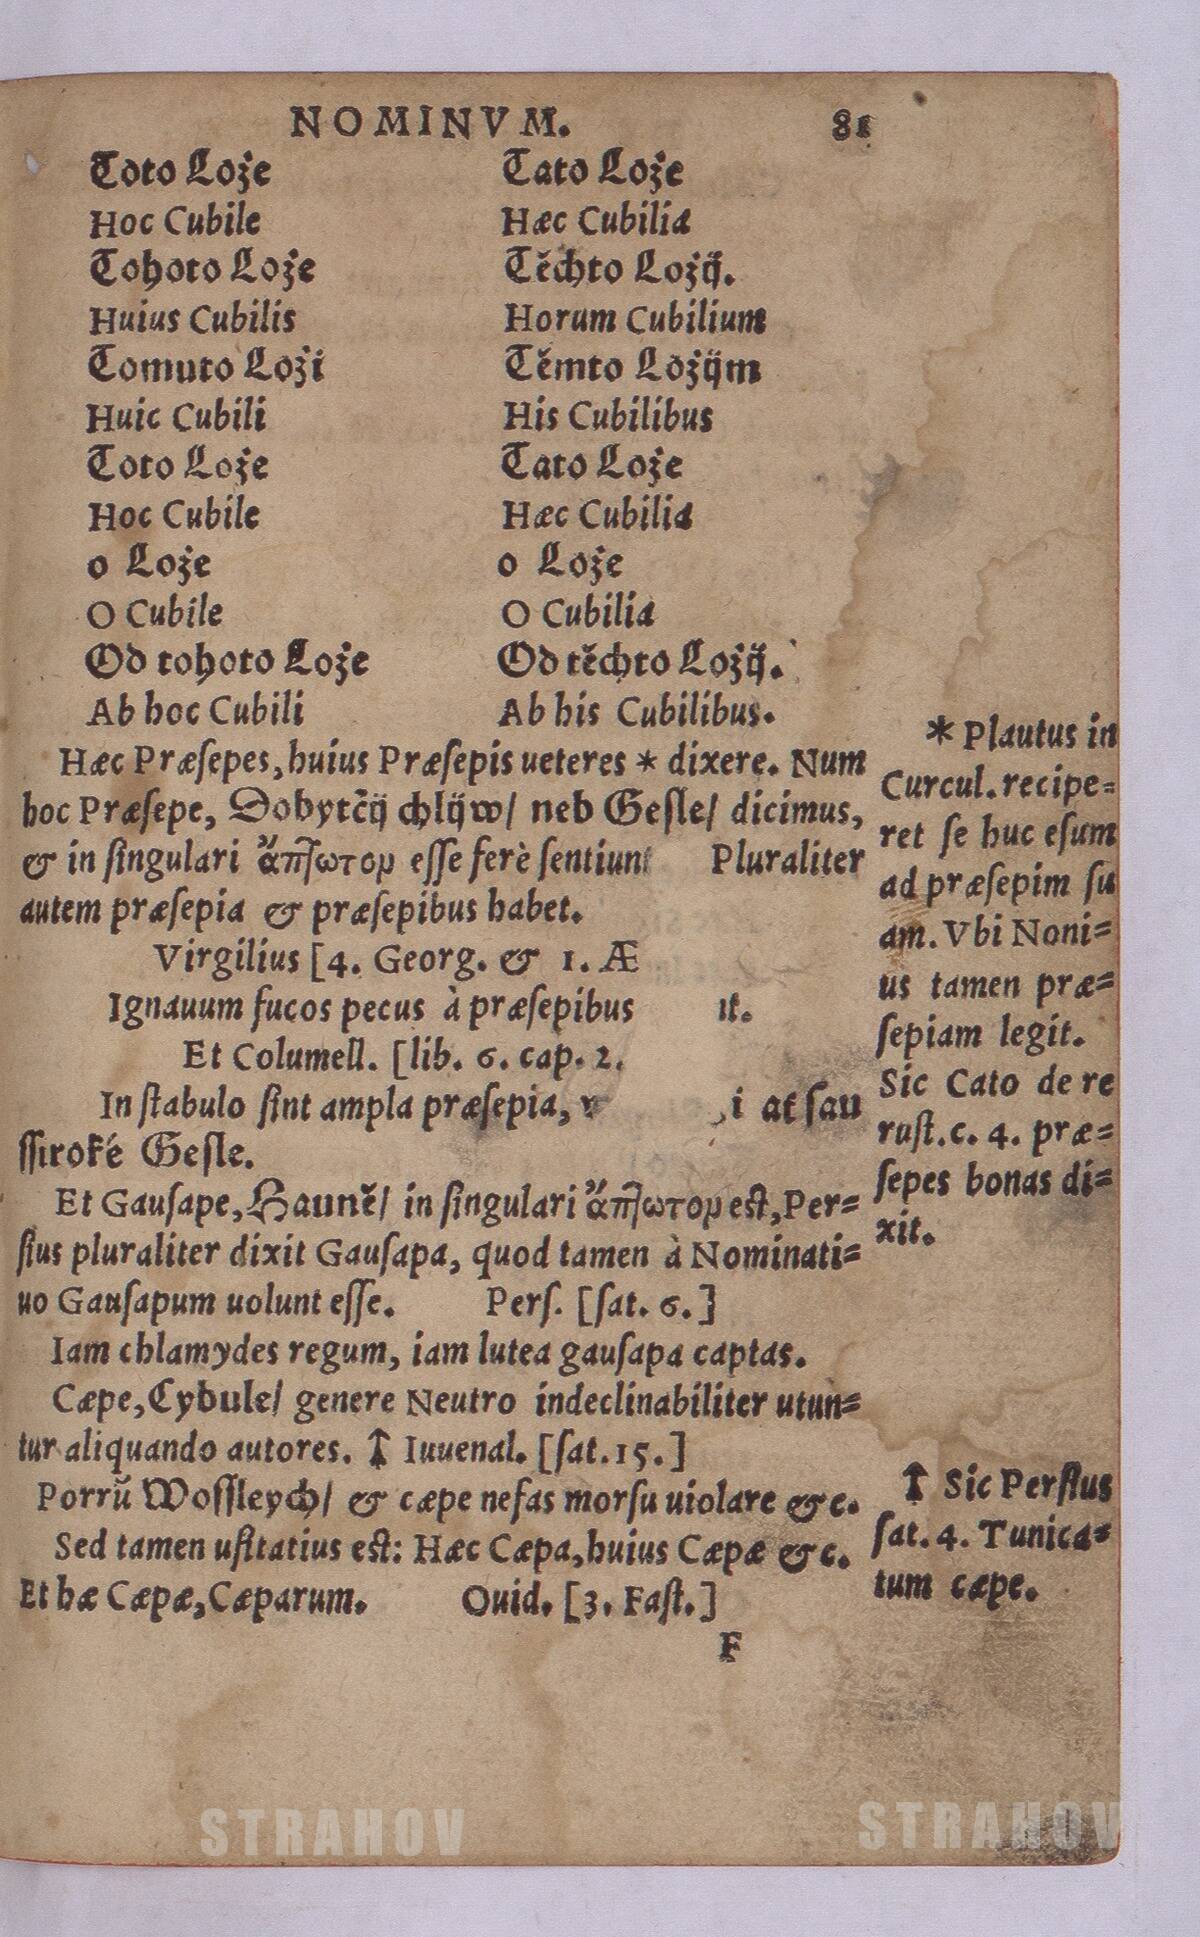 NOMINVM. 81
Toto Lože Tato Lože
Hoc Cubile Hæc Cubilia
Tohoto Lože Těchto Ložij.
Huius Cubilis Horum Cubilium
Tomuto Loži Těmto Ložijm
Huic Cubili His Cubilibus
Toto Lože Tato Lože
Hoc Cubile Hæc Cubilia
o Lože o Lože
O Cubile O Cubilia
Od tohoto Lože Od těchto Ložij.
Ab hoc Cubili Ab his Cubilibus.
Hæc Præſepes, huius Præſepis ueteres * dixere. Num
hoc Præſepe, Dobytčij chlijw/ neb Geſle/ dicimus,
& in ſingulari ἄπτωτομ eſſe ferè ſentiunt Pluraliter
autem præſepia & præſepibus habet.
Virgilius [4. Georg. & 1. Æ
Ignauum fucos pecus à præſepibus
Et Columell. [lib. 6. cap. 2.
In ſtabulo ſint ampla præſepia, i at ſau
ſſiroké Geſle.
Et Gauſape, Hauně/ in ſingulari ἄπτωτομ eſt, Per=
ſius pluraliter dixit Gauſapa, quod tamen à Nominati=
uo Gauſapum uolunt eſſe. Perſ. [ſat. 6.]
Iam chlamydes regum, iam lutea gauſapa captas.
Cæpe, Cybule/ genere Neutro indeclinabiliter utun=
tur aliquando autores. ☨ Iuuenal. [ſat. 15.]
Porrũ Woſſleych/ & cæpe nefas morſu uiolare &c.
Sed tamen uſitatius eſt: Hæc Cæpa, huius Cæpæ &c.
Et hæ Cæpæ, Cæparum. Ouid. [3. Faſt.]
F
* Plautus in
Curcul. recipe=
ret ſe huc eſum
ad præſepim ſu
am. Vbi Noni=
us tamen præ=
ſepiam legit.
Sic Cato de re
ruſt. c. 4. præ=
ſepes bonas di=
xit.
☨ Sic Perſius
ſat. 4. Tunica=
tum cæpe.
STRAHOV STRAHOV